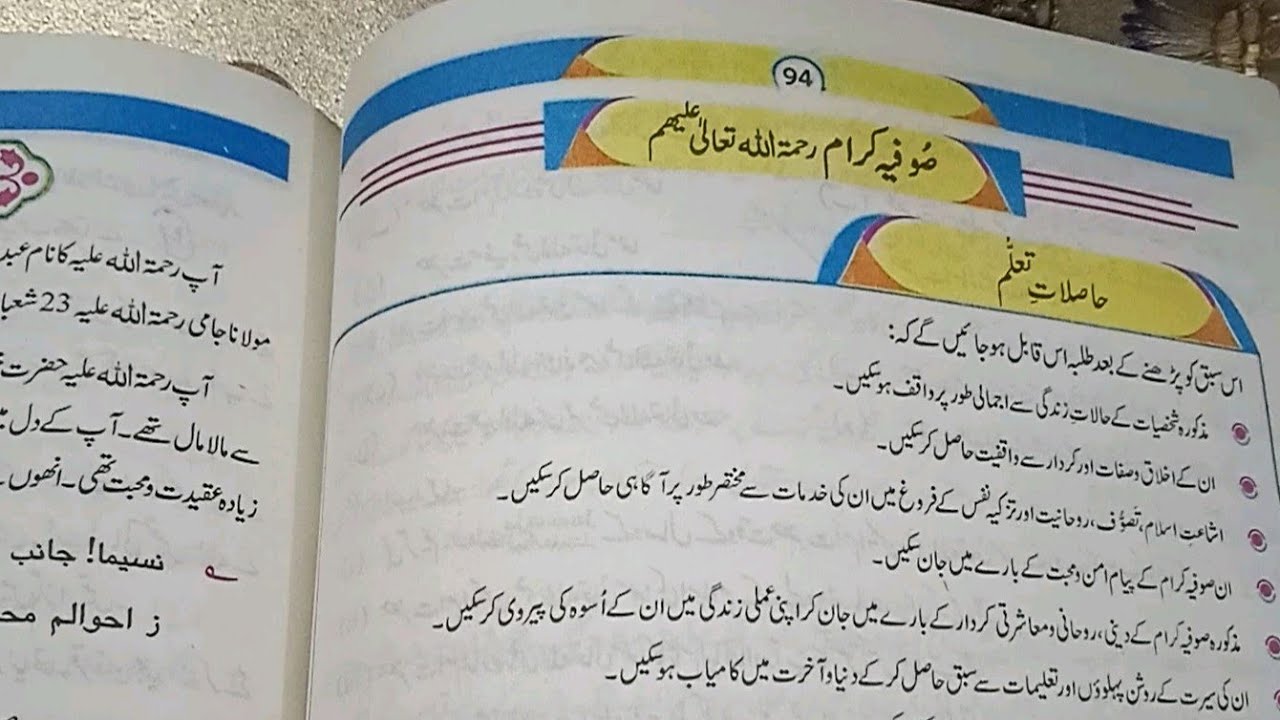 94
صُوفیہ کرام رحمۃ اللہ تعالیٰ علیہم
حاصلاتِ تعلّم
اس سبق کو پڑھنے کے بعد طلبہ اس قابل ہو جائیں گے کہ:
مذکورہ شخصیات کے حالاتِ زندگی سے اجمالی طور پر واقف ہو سکیں۔
ان کے اخلاق و صفات اور کردار سے واقفیت حاصل کر سکیں۔
اشاعتِ اسلام، تصوُّف، روحانیت اور تزکیہ نفس کے فروغ میں ان کی خدمات سے مختصر طور پر آگاہی حاصل کر سکیں۔
ان صوفیہ کرام کے پیام امن و محبت کے بارے میں جان سکیں۔
مذکورہ صوفیہ کرام کے دینی، روحانی و معاشرتی کردار کے بارے میں جان کر اپنی عملی زندگی میں ان کے اُسوہ کی پیروی کر سکیں۔
ان کی سیرت کے روشن پہلوؤں اور تعلیمات سے سبق حاصل کر کے دنیا و آخرت میں کامیاب ہو سکیں۔
آپ رحمۃ اللہ علیہ کا نام عبد
مولانا جامی رحمۃ اللہ علیہ 23 شعبا
آپ رحمۃ اللہ علیہ حضرت
سے مالا مال تھے۔ آپ کے دل میں
زیادہ عقیدت و محبت تھی۔ انھوں
نسیما! جانب
ز احوالم محـ